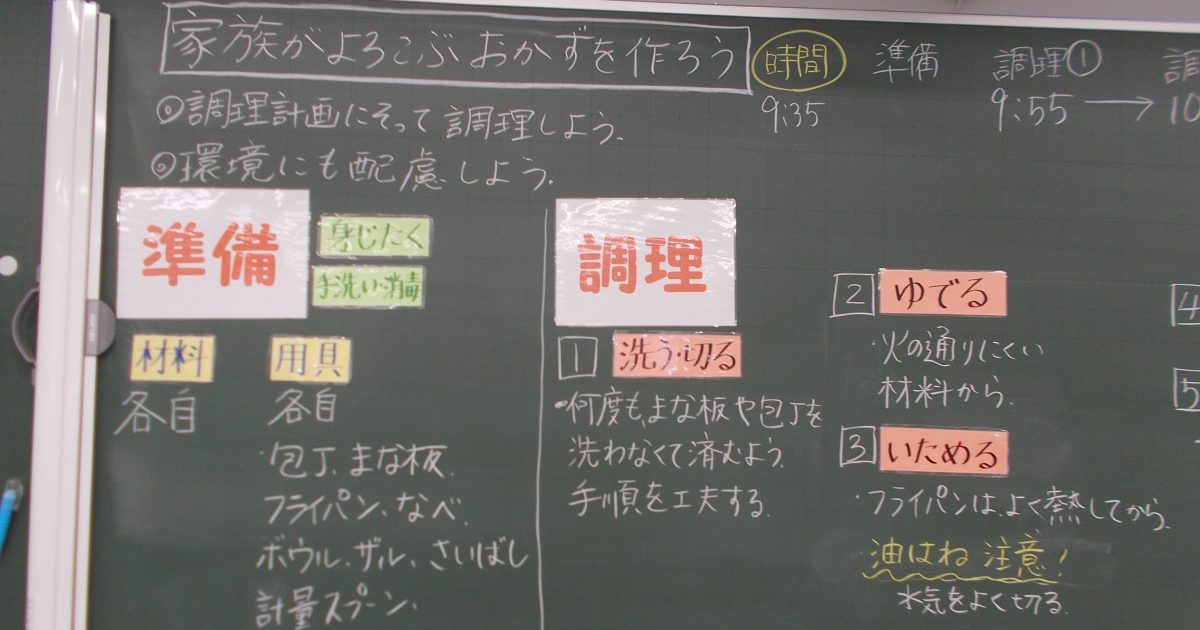 家族がよろこぶおかずを作ろう
時間 準備 調理①
9:35 9:55 → 10
◎調理計画にそって調理しよう.
◎環境にも配慮しよう.
準備
身じたく
手洗い・消毒
材料
各自
用具
各自
・包丁、まな板.
フライパン、なべ.
ボウル、ザル、さいばし
計量スプーン、
調理
1 洗う・切る
・何度も、まな板や包丁を
洗わなくて済むよう.
手順を工夫する.
2 ゆでる
・火の通りにくい
材料から.
3 いためる
・フライパンは、よく熱してから.
油はね注意!
水気をよく切る.
4
5